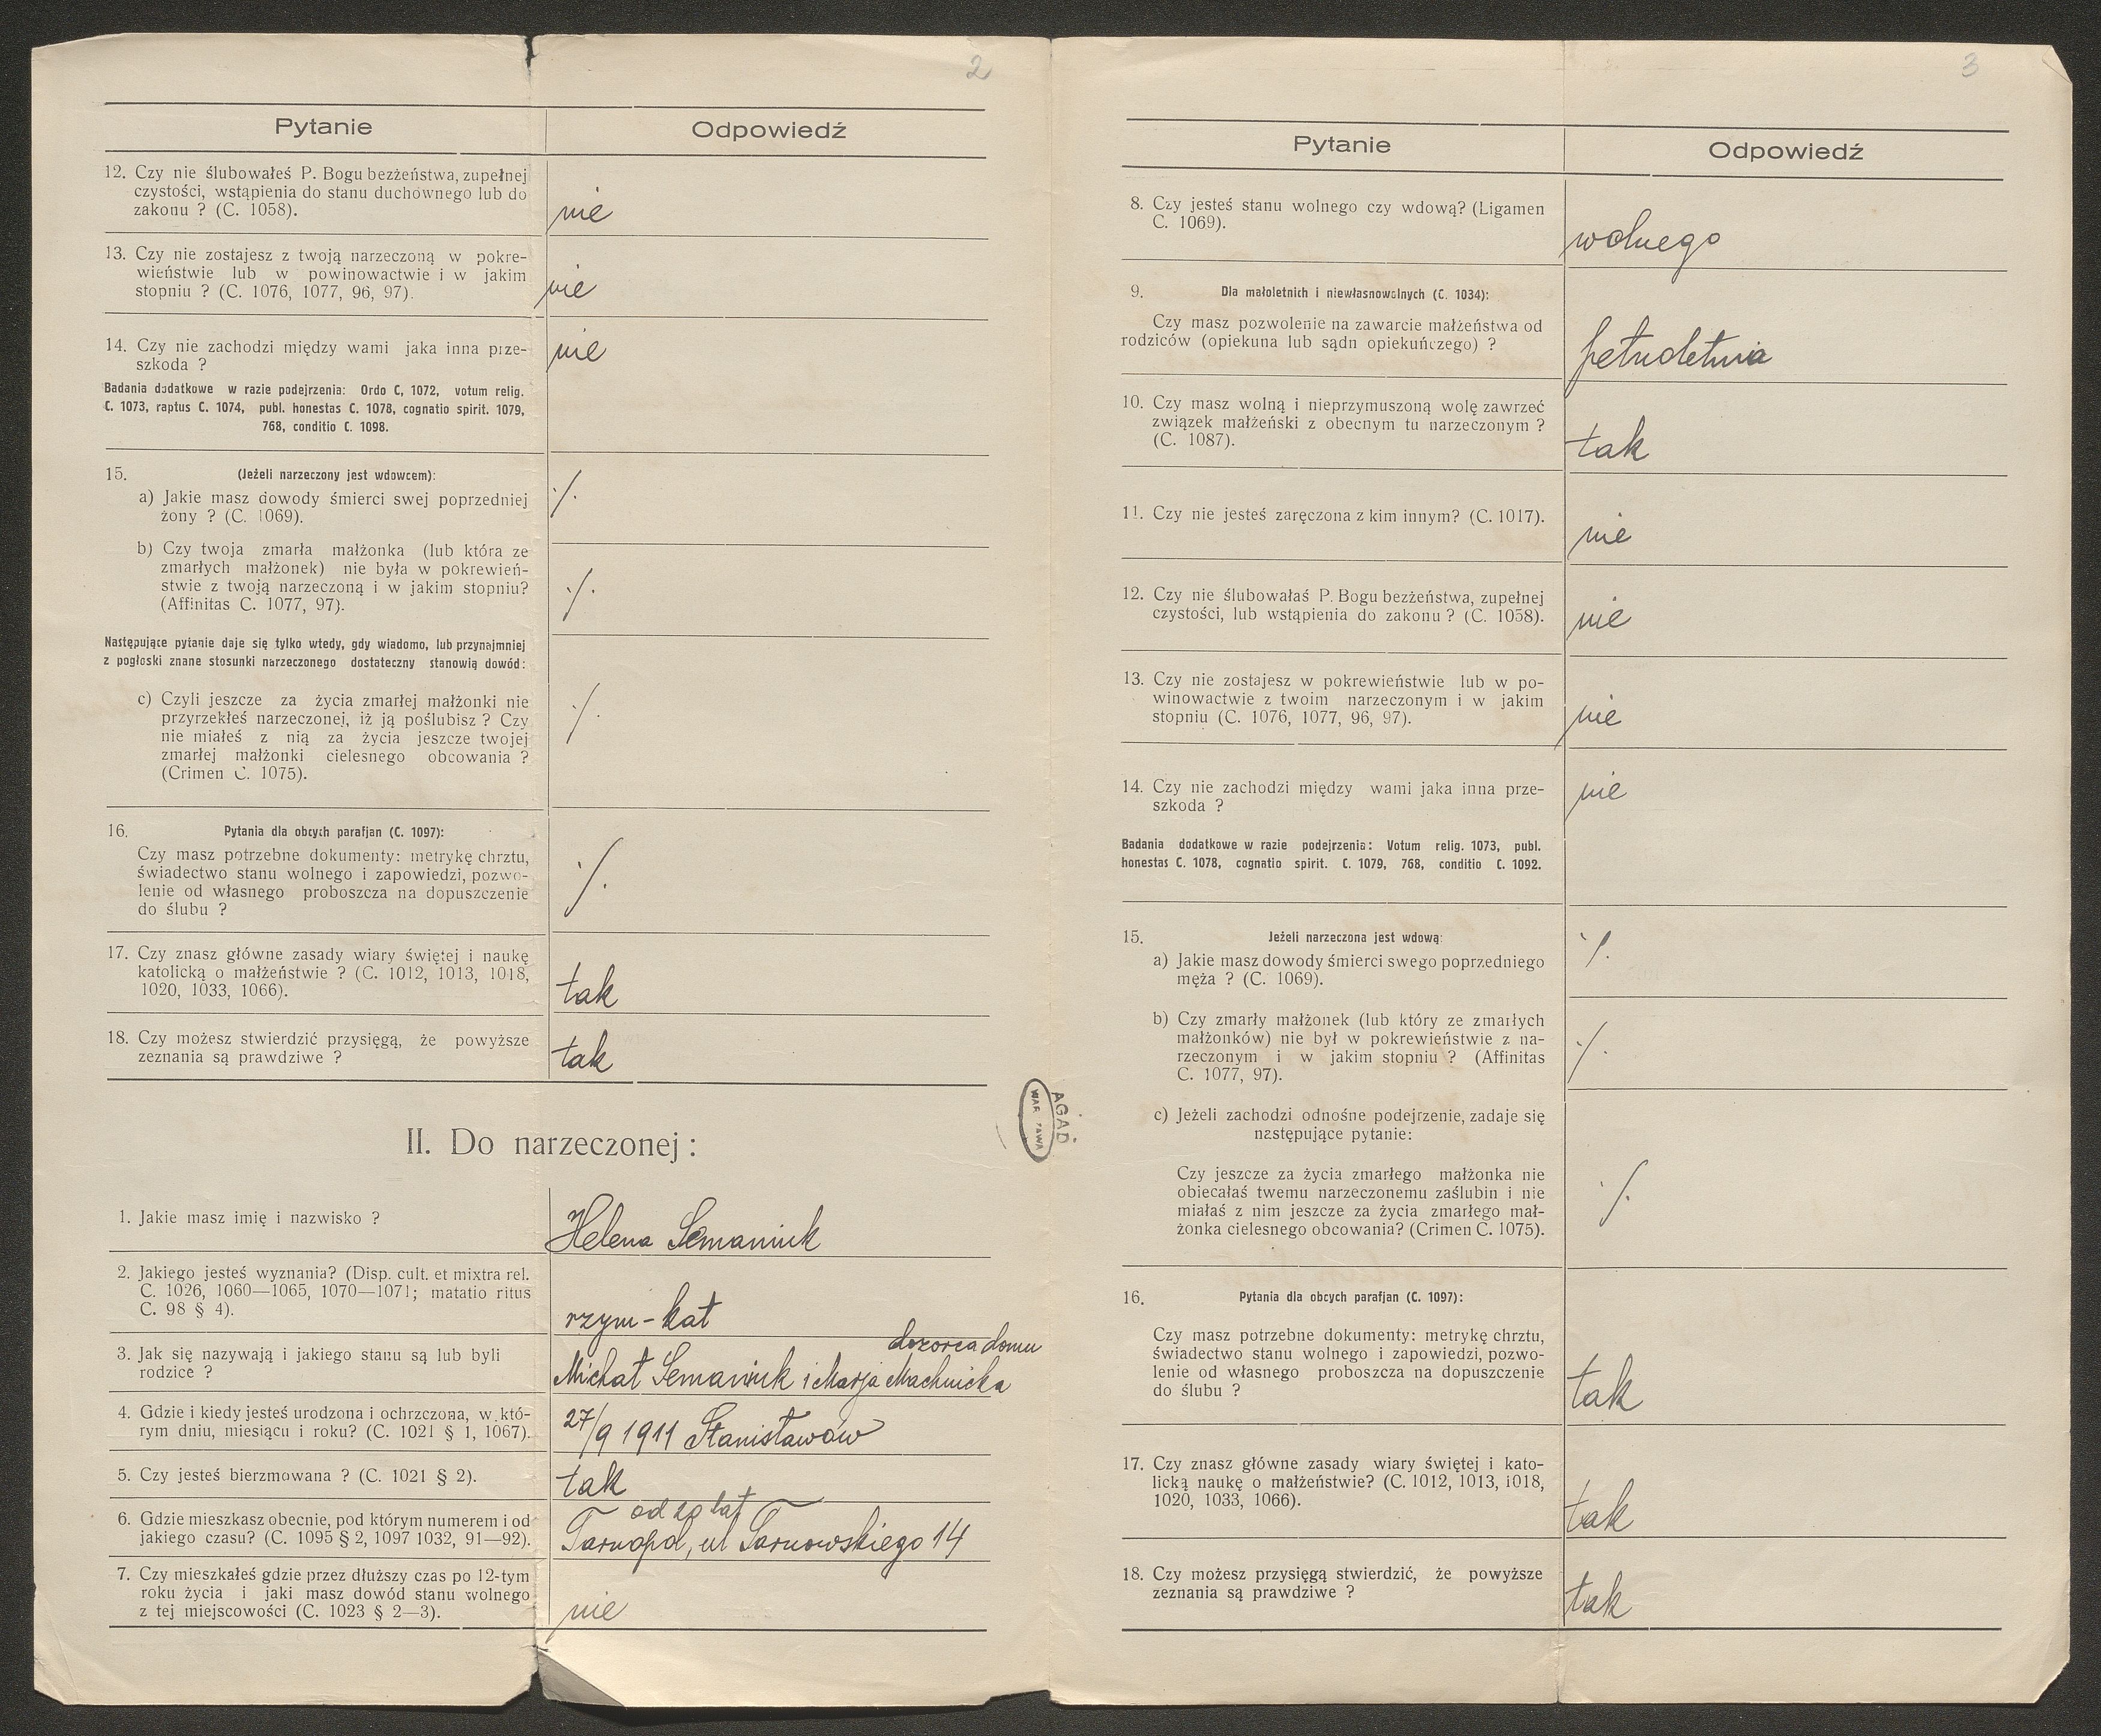 2
Pytanie
Odpowiedź
12. Czy nie ślubowałeś P. Bogu bezżeństwa, zupełnej
czystości, wstąpienia do stanu duchownego lub do
zakonu ? (C. 1058).
nie
13. Czy nie zostajesz z twoją narzeczoną w pokre-
wieństwie lub w powinowactwie i w jakim
stopniu ? (C. 1076, 1077, 96, 97).
nie
14. Czy nie zachodzi między wami jaka inna prze-
szkoda ?
nie
Badania dodatkowe w razie podejrzenia: Ordo C, 1072, votum relig.
C. 1073, raptus C. 1074, publ. honestas C. 1078, cognatio spirit. 1079,
768, conditio C. 1098.
15. (Jeżeli narzeczony jest wdowcem):
a) Jakie masz dowody śmierci swej poprzedniej
żony ? (C. 1069).
·/.
b) Czy twoja zmarła małżonka (lub która ze
zmarłych małżonek) nie była w pokrewień-
stwie z twoją narzeczoną i w jakim stopniu?
(Affinitas C. 1077, 97).
·/.
Następujące pytanie daje się tylko wtedy, gdy wiadomo, lub przynajmniej
z pogłoski znane stosunki narzeczonego dostateczny stanowią dowód:
c) Czyli jeszcze za życia zmarłej małżonki nie
przyrzekłeś narzeczonej, iż ją poślubisz ? Czy
nie miałeś z nią za życia jeszcze twojej
zmarłej małżonki cielesnego obcowania ?
(Crimen C. 1075).
·/.
16. Pytania dla obcych parafjan (C. 1097):
Czy masz potrzebne dokumenty: metrykę chrztu,
świadectwo stanu wolnego i zapowiedzi, pozwo-
lenie od własnego proboszcza na dopuszczenie
do ślubu ?
·/.
17. Czy znasz główne zasady wiary świętej i naukę
katolicką o małżeństwie ? (C. 1012, 1013, 1018,
1020, 1033, 1066).
tak
18. Czy możesz stwierdzić przysięgą, że powyższe
zeznania są prawdziwe ?
tak
II. Do narzeczonej :
1. Jakie masz imię i nazwisko ?
Helena Semaniuk
2. Jakiego jesteś wyznania? (Disp. cult. et mixtra rel.
C. 1026, 1060—1065, 1070—1071; matatio ritus
C. 98 § 4).
rzym-kat
3. Jak się nazywają i jakiego stanu są lub byli
rodzice ?
dozorca domu
Michał Semaniuk i Marja Machnicka
4. Gdzie i kiedy jesteś urodzona i ochrzczona, w któ-
rym dniu, miesiącu i roku? (C. 1021 § 1, 1067).
27/9 1911 Stanisławów
5. Czy jesteś bierzmowana ? (C. 1021 § 2).
tak
6. Gdzie mieszkasz obecnie, pod którym numerem i od
jakiego czasu? (C. 1095 § 2, 1097 1032, 91—92).
od 20 lat
Tarnopol, ul Tarnowskiego 14
7. Czy mieszkałeś gdzie przez dłuższy czas po 12-tym
roku życia i jaki masz dowód stanu wolnego
z tej miejscowości (C. 1023 § 2—3).
nie
AGAD
WARSZAWA
3
Pytanie
Odpowiedź
8. Czy jesteś stanu wolnego czy wdową? (Ligamen
C. 1069).
wolnego
9. Dla małoletnich i niewłasnowolnych (C. 1034):
Czy masz pozwolenie na zawarcie małżeństwa od
rodziców (opiekuna lub sądn opiekuńczego) ?
pełnoletnia
10. Czy masz wolną i nieprzymuszoną wolę zawrzeć
związek małżeński z obecnym tu narzeczonym ?
(C. 1087).
tak
11. Czy nie jesteś zaręczona z kim innym? (C. 1017).
nie
12. Czy nie ślubowałaś P. Bogu bezżeństwa, zupełnej
czystości, lub wstąpienia do zakonu ? (C. 1058).
nie
13. Czy nie zostajesz w pokrewieństwie lub w po-
winowactwie z twoim narzeczonym i w jakim
stopniu (C. 1076, 1077, 96, 97).
nie
14. Czy nie zachodzi między wami jaka inna prze-
szkoda ?
nie
Badania dodatkowe w razie podejrzenia: Votum relig. 1073, publ.
honestas C. 1078, cognatio spirit. C. 1079, 768, conditio C. 1092.
15. Jeżeli narzeczona jest wdową:
a) Jakie masz dowody śmierci swego poprzedniego
męża ? (C. 1069).
·/.
b) Czy zmarły małżonek (lub który ze zmarłych
małżonków) nie był w pokrewieństwie z na-
rzeczonym i w jakim stopniu ? (Affinitas
C. 1077, 97).
·/.
c) Jeżeli zachodzi odnośne podejrzenie, zadaje się
następujące pytanie:
Czy jeszcze za życia zmarłego małżonka nie
obiecałaś twemu narzeczonemu zaślubin i nie
miałaś z nim jeszcze za życia zmarłego mał-
żonka cielesnego obcowania? (Crimen C. 1075).
·/.
16. Pytania dla obcych parafjan (C. 1097):
Czy masz potrzebne dokumenty: metrykę chrztu,
świadectwo stanu wolnego i zapowiedzi, pozwo-
lenie od własnego proboszcza na dopuszczenie
do ślubu ?
tak
17. Czy znasz główne zasady wiary świętej i kato-
licką naukę o małżeństwie? (C. 1012, 1013, 1018,
1020, 1033, 1066).
tak
18. Czy możesz przysięgą stwierdzić, że powyższe
zeznania są prawdziwe ?
tak